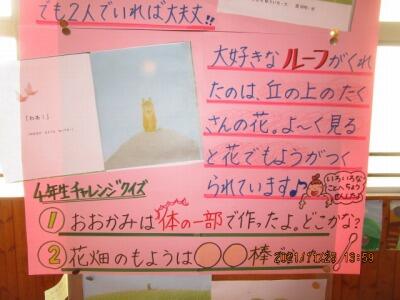 でも2人でいれば大丈夫!!
「わあ！」
大好きなルーフがくれ
たのは、丘の上のたく
さんの花。よ〜く見る
と花でもようがつく
られています♪
いろいろな
ことへちょう
せんだよ
4年生チャレンジクイズ
①おおかみは体の一部で作ったよ。どこかな?
②花畑のもようは○○棒で
2021/11/25 13:59